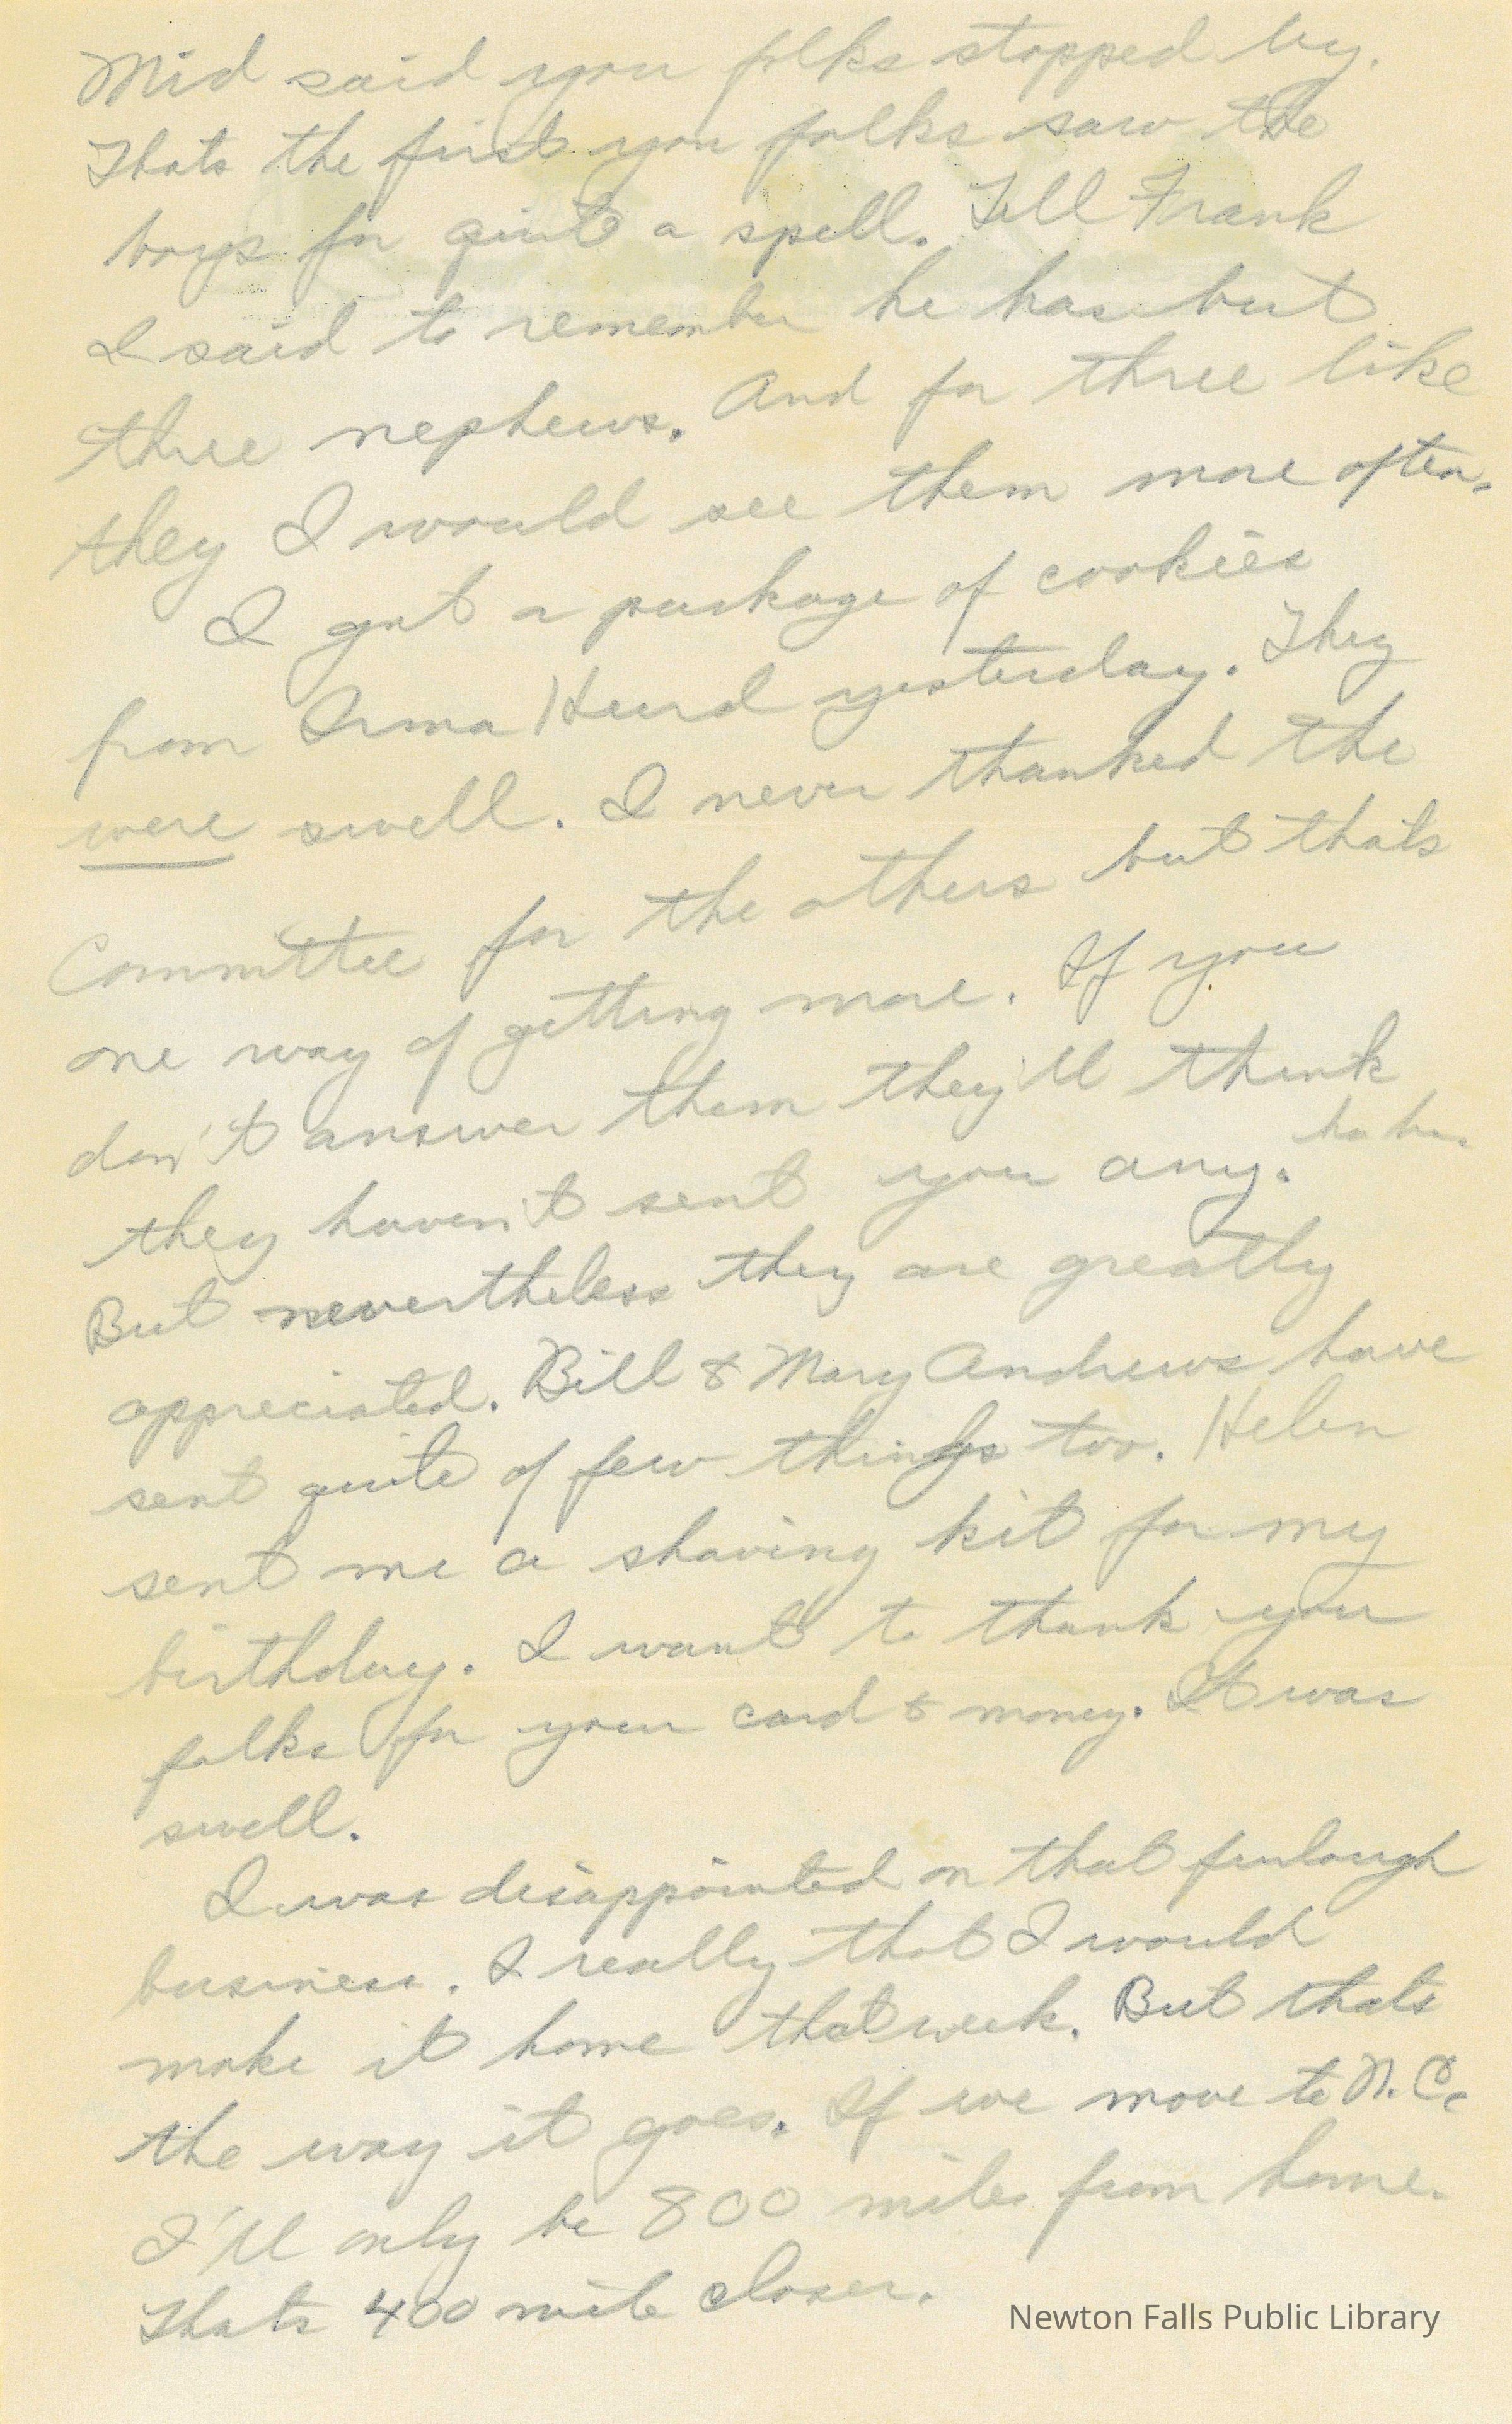 Mid said you folks stopped by.
Thats the first you folks saw the
boys for quite a spell. Tell Frank
I said to remember he has but
three nephews. And for three like
they I would see them more often.
I got a package of cookies
from Irma Heurd yesterday. They
were swell. I never thanked the
Committee for the others but thats
one way of getting more. If you
don't answer them they'll think
they haven't sent you any. ha ha.
But nevertheless they are greatly
appreciated. Bill & Mary Andrews have
sent quite of few things too. Helen
sent me a shaving kit for my
birthday. I want to thank you
folks for your card & money. It was
swell.
I was disappointed on that furlough
business. I really that I would
make it home that week. But thats
the way it goes. If we move to N.C.
I'll only be 800 miles from home.
Thats 400 mile closer.
Newton Falls Public Library